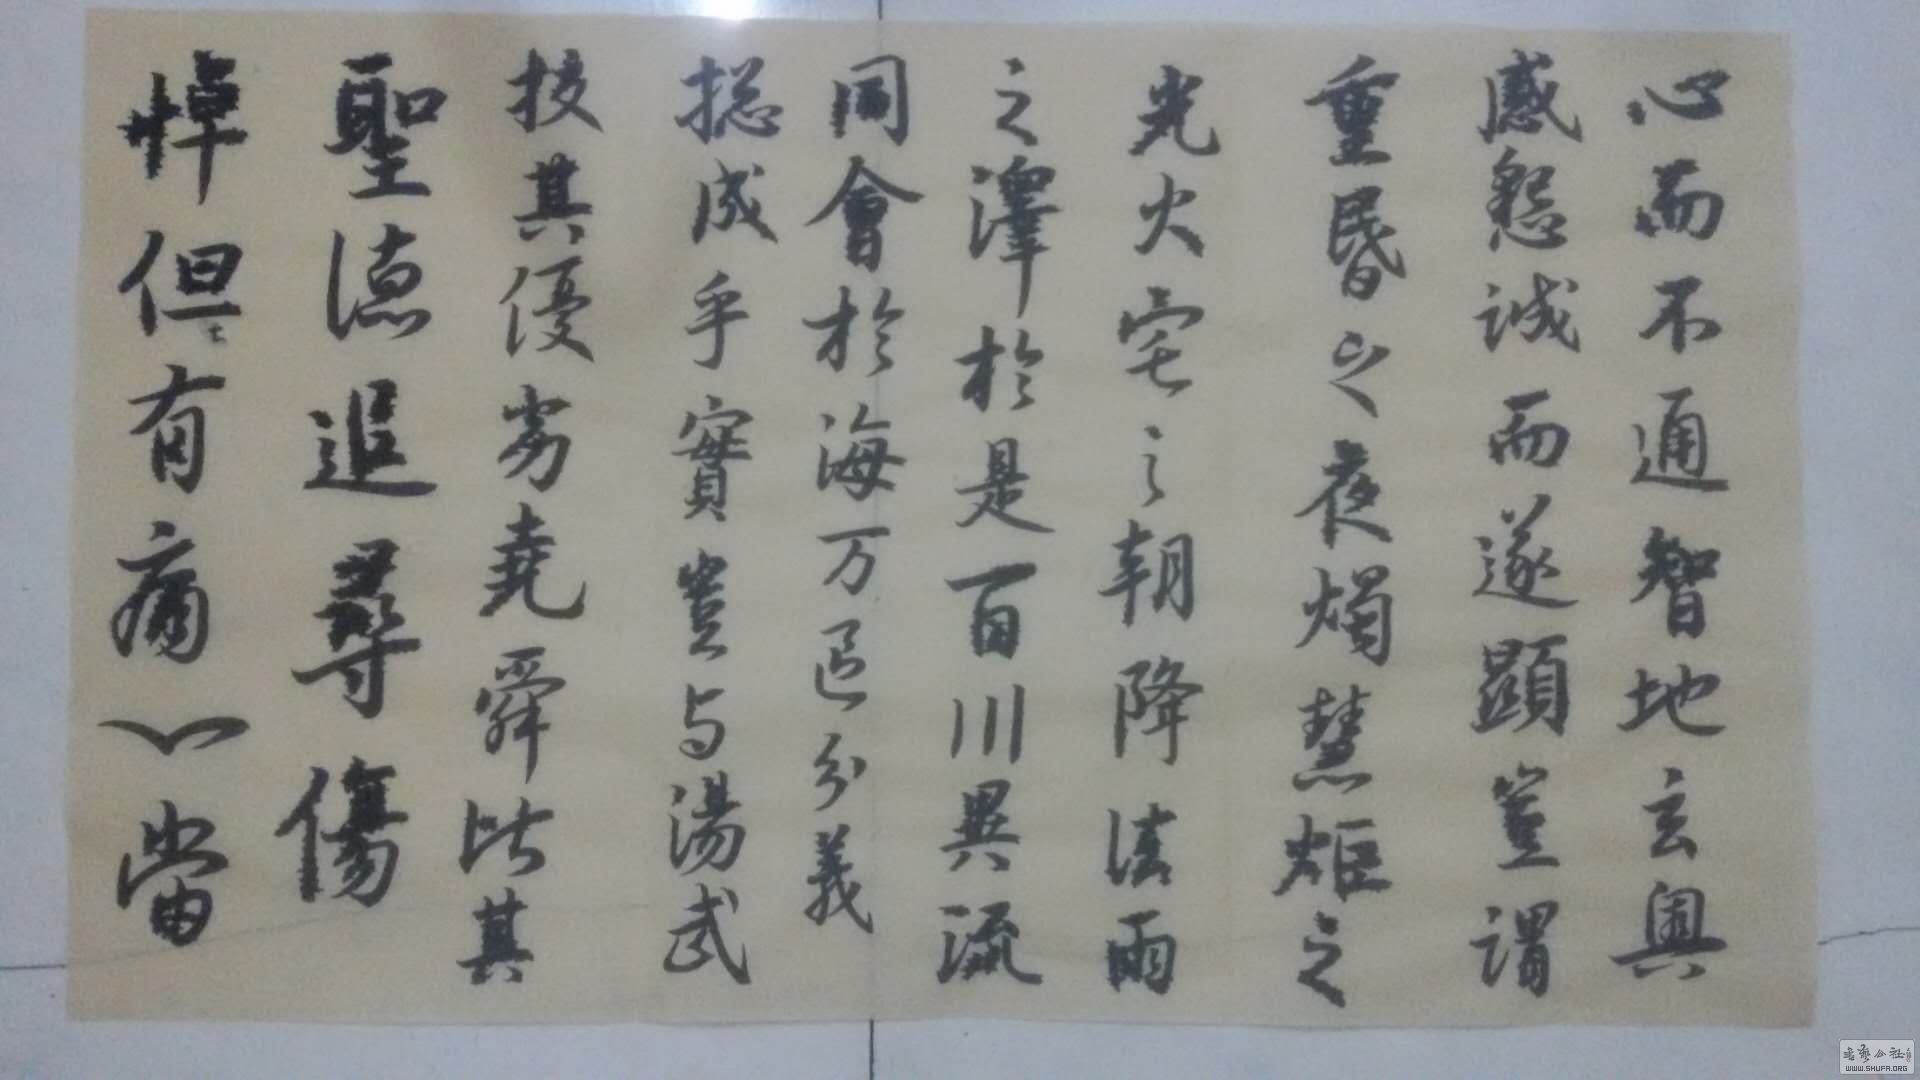 心而不通智地玄奧
感懇誠而遂顯豈謂
重昏之夜燭慧炬之
光火宅之朝降法雨
之澤於是百川異流
同會於海万區分義
揔成乎實豈与湯武
挍其優劣堯舜比其
聖德追尋傷
悼但有痛心當
书艺公社
WWW.SHUFA.ORG